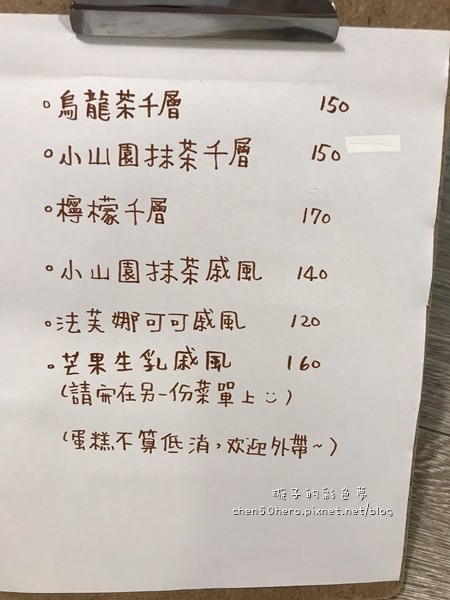 。烏龍茶千層 150
。小山園抹茶千層 150
。檸檬千層 170
。小山園抹茶戚風 140
。法芙娜可可戚風 120
。芒果生乳戚風 160
(請寫在另一份菜單上☺)
(蛋糕不算低消,欢迎外帶~)
璇子的彩色夢
chen50hero.pixnet.net/blog